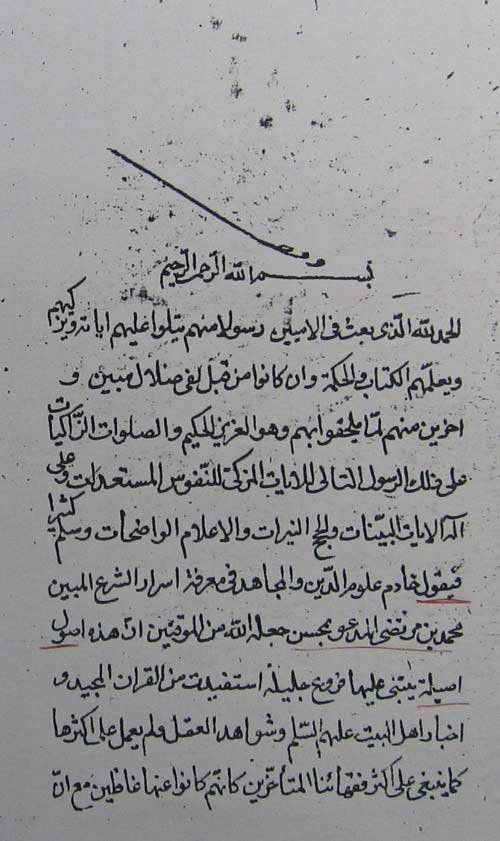 بسم الله الرحمن الرحيم
الحمد لله الّذى بعث فى الاميين رسولا منهم يتلوا عليهم اياته ويزكيهم
ويعلّمهم الكتاب والحكمة وان كانوا من قبل لفى ضلال مبين و
اخرين منهم لمّا يلحقوا بهم وهو العزيز الحكيم والصلوات الزّاكيات
على ذلك الرسول التالى للايات المزكّى للنّفوس المستعدات وعلى
اله الايات البيّنات والحجج النيرات والاعلام الواضحات وسلم كثيرا
فيقول خادم علوم الدّين والمجاهد فى معرفة اسرار الشرع المبين
محمد بن مرتضى المدعو بمحسن جعله الله من الموقنين ان هذه اصول
اصيلة يبتنى عليها فروع جليلة استفيدت من القران المجيد و
اخبار اهل البيت عليهم السّلم وشواهد العقل ولم يعمل على اكثرها
كما ينبغى على اكثر فقهائنا المتأخرين كانهم كانوا عنها غافلين مع انّ